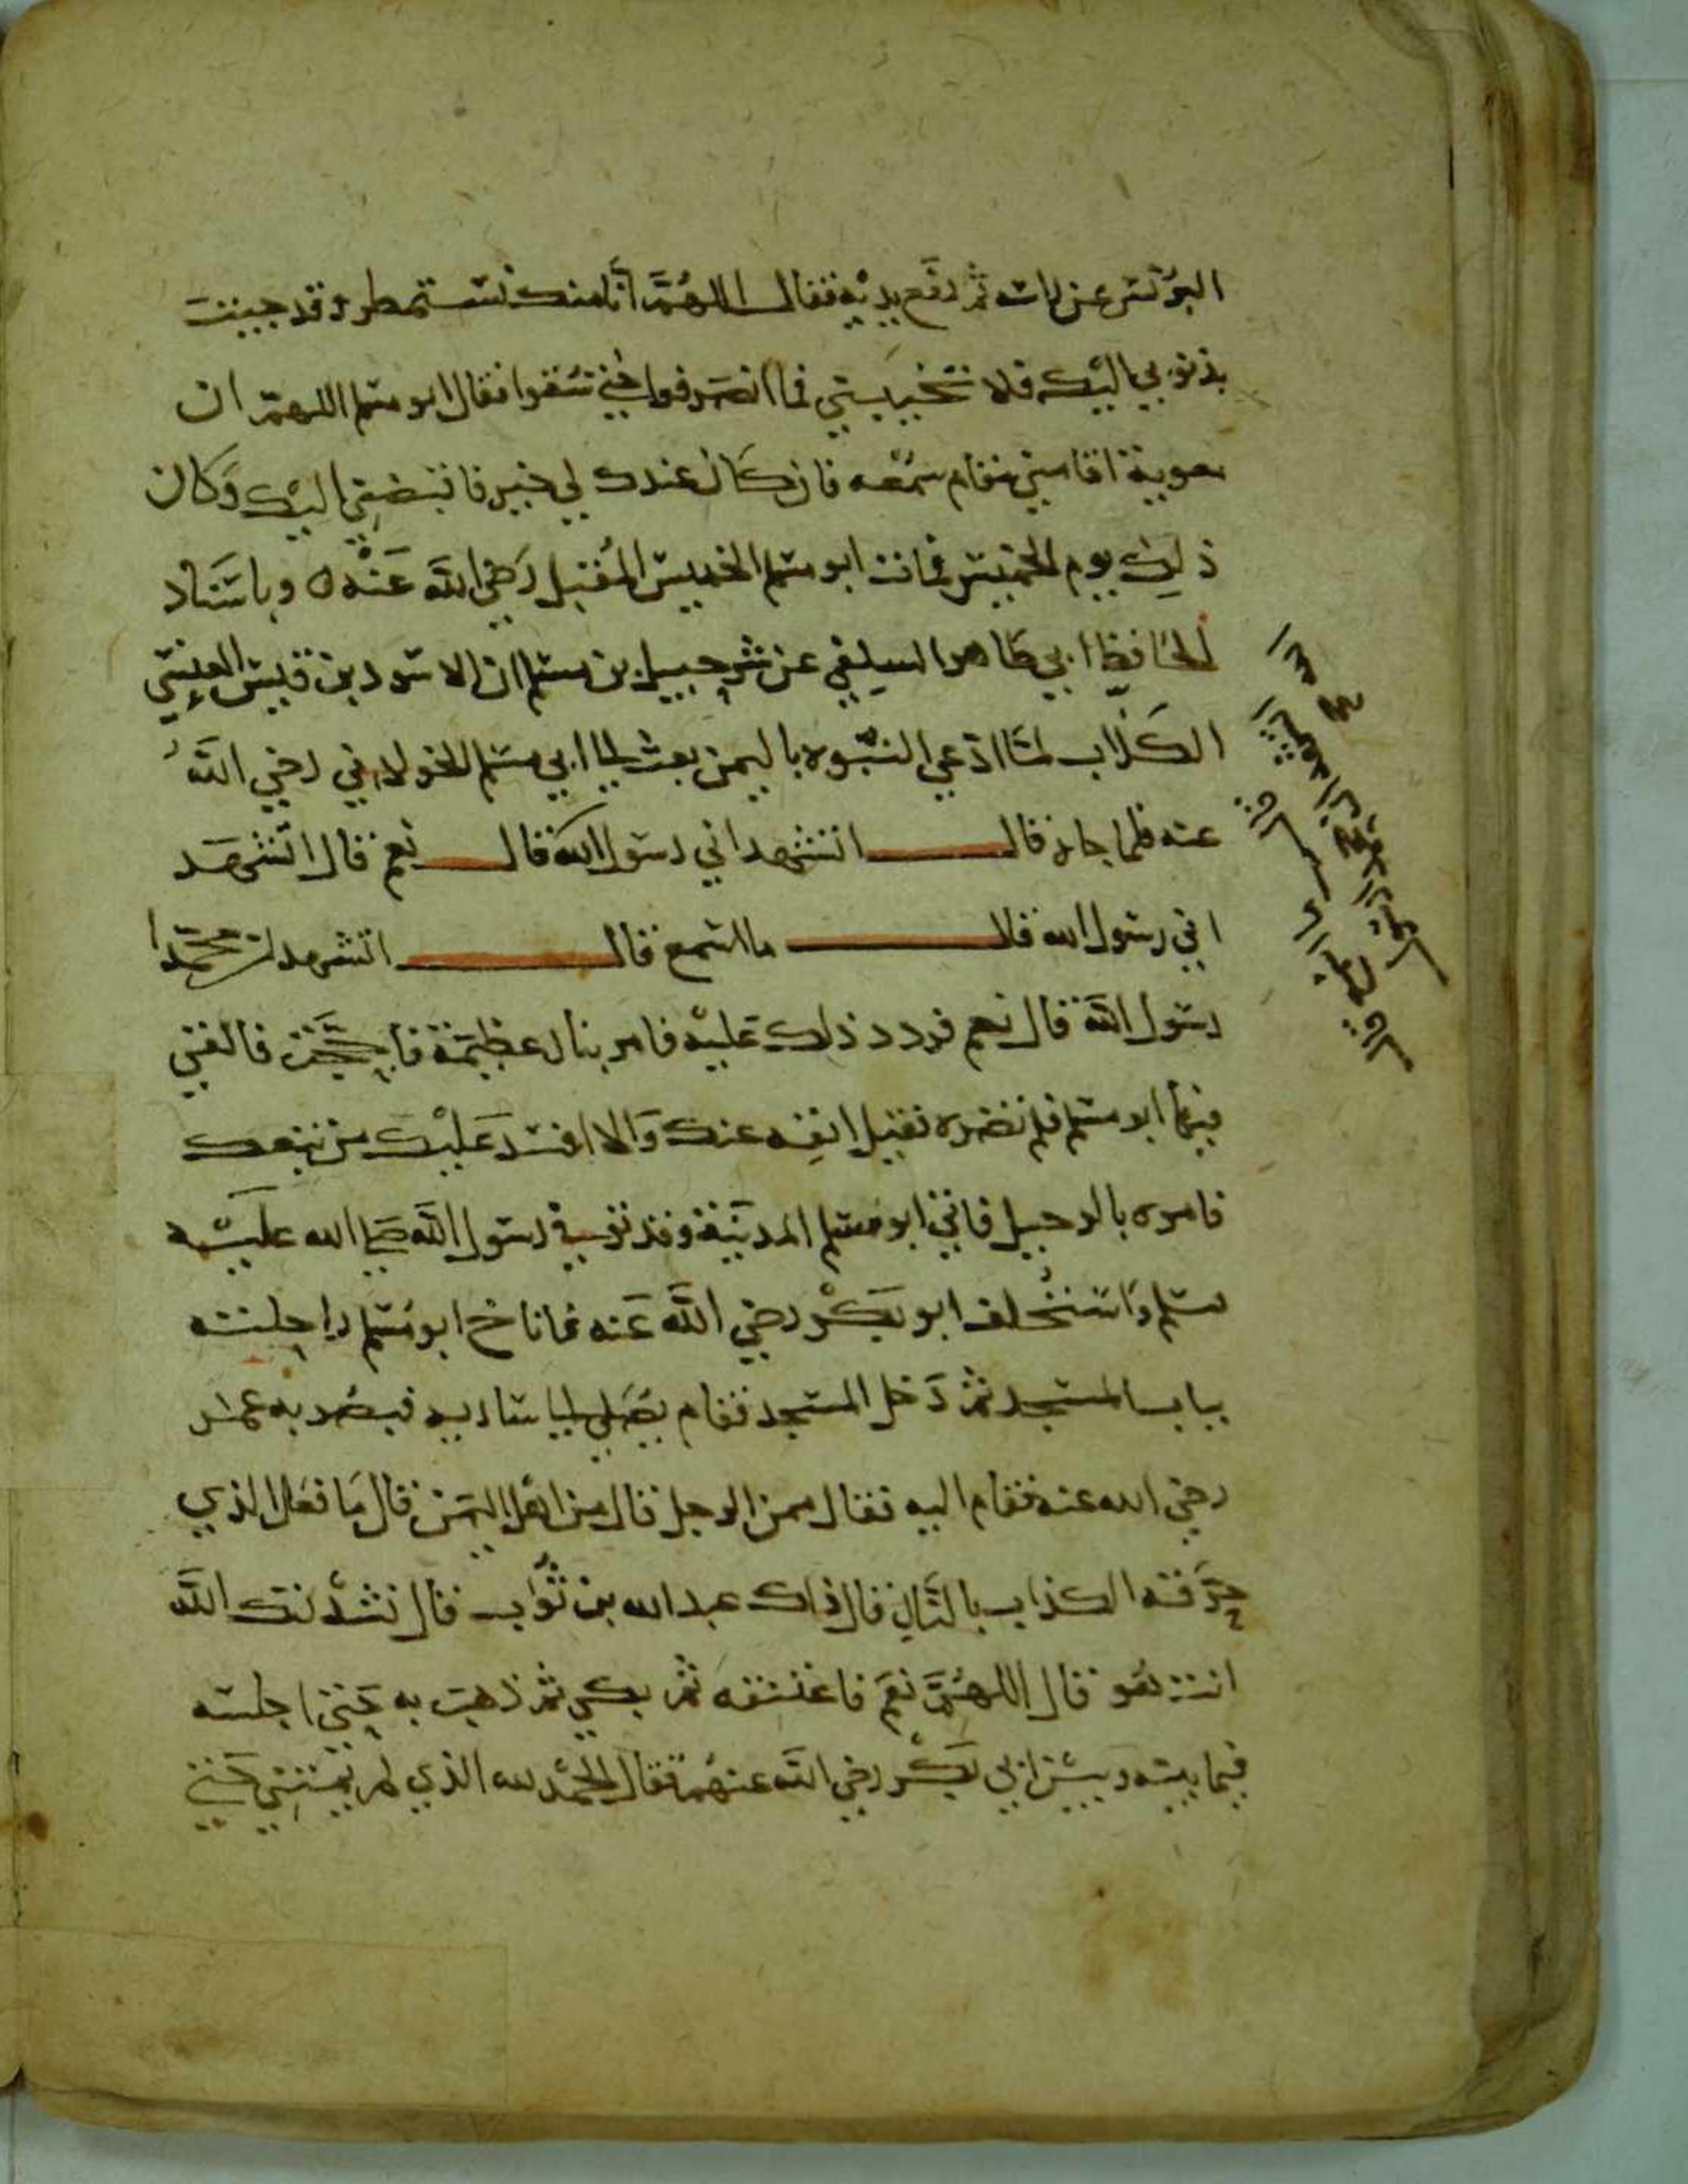 البرنس عن راسه ثم رفع يديه فقال اللهم انا منك نستمطر وقد جيت
بذنوبي اليك فلا تخيبني فما انصرفوا حتى سقوا فقال ابو مسلم اللهم ان
معوية اقامني مقام سمعه فان كان عندك لي خير فاقبضني اليك وكان
ذلك يوم الخميس فمات ابو مسلم الخميس المقبل رضي الله عنه ٥ وباسناد
الحافظ ابي طاهر السلفي عن شرحبيل بن مسلم ان الاسود بن قيس العنسي
الكذاب لما ادعي النبوه باليمن بعث الى ابي مسلم الخولاني رضي الله
عنه فلما جاه قال اتشهد اني رسول الله قال نعم قال اتشهد
اني رسول الله قال ما اسمع قال اتشهد ان محمدا
رسول الله قال نعم فردد ذلك عليه فامر بنار عظيمة فاججت فالقي
فيها ابو مسلم فلم تضره فقيل انفه عنك والا افسد عليك من تبعك
فامره بالرحيل فاتى ابو مسلم المدينة وقد توفي رسول الله صلى الله عليه
وسلم واستخلف ابو بكر رضي الله عنه فاناخ ابو مسلم راحلته
بباب المسجد ثم دخل المسجد فقام يصلي الى ساريه فبصر به عمر
رضي الله عنه فقام اليه فقال ممن الرجل قال من اهل اليمن قال ما فعل الذي
حرقه الكذاب بالنار قال ذاك عبد الله بن ثواب قال نشدتك الله
انت هو قال اللهم نعم فاعتنقه ثم بكى ثم ذهب به حتى اجلسه
فيما بينه وبين ابي بكر رضي الله عنهما فقال الحمد لله الذي لم يمتني حتى